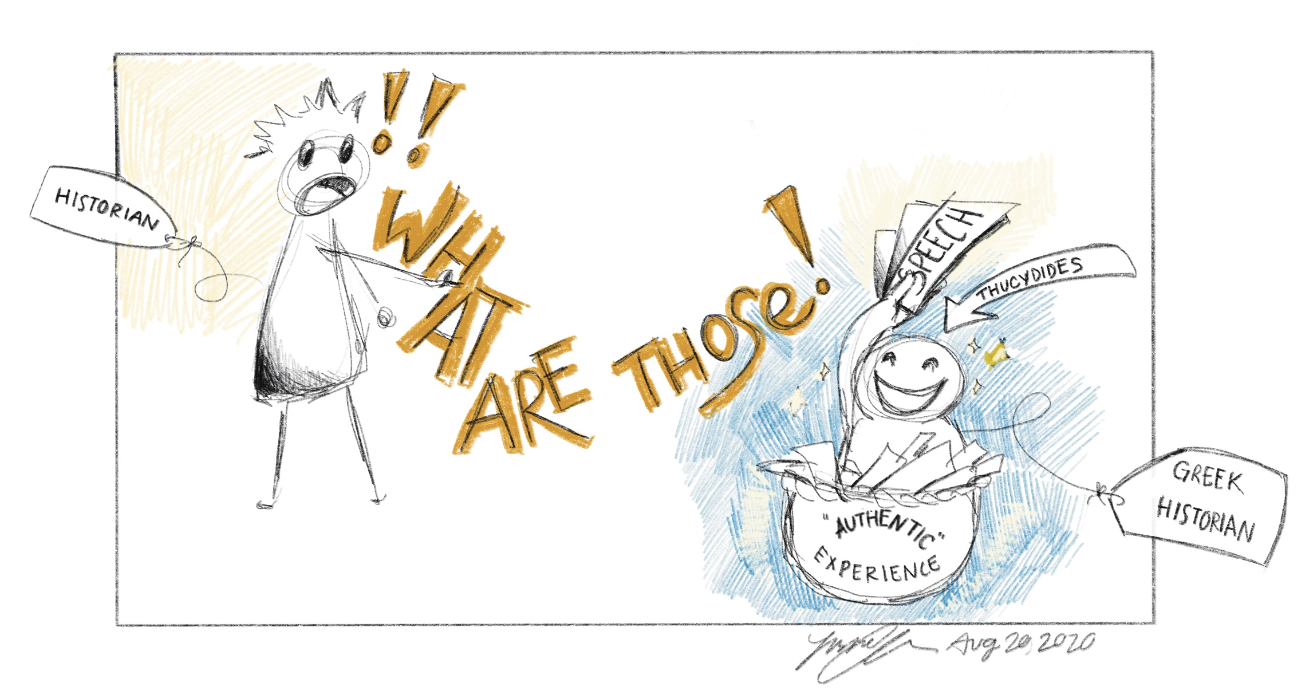 HISTORIAN
!!
WHAT
ARE THOSE!
SPEECH
THUCYDIDES
"AUTHENTIC"
EXPERIENCE
GREEK
HISTORIAN
Aug 29, 2020